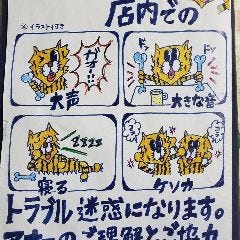 店内での
※イラスト付き
ガオ…
大声
ドン
ドン
大きな音
zzzz
寝る
ケンカ
トラブル 迷惑になります。
ご理解とご協力